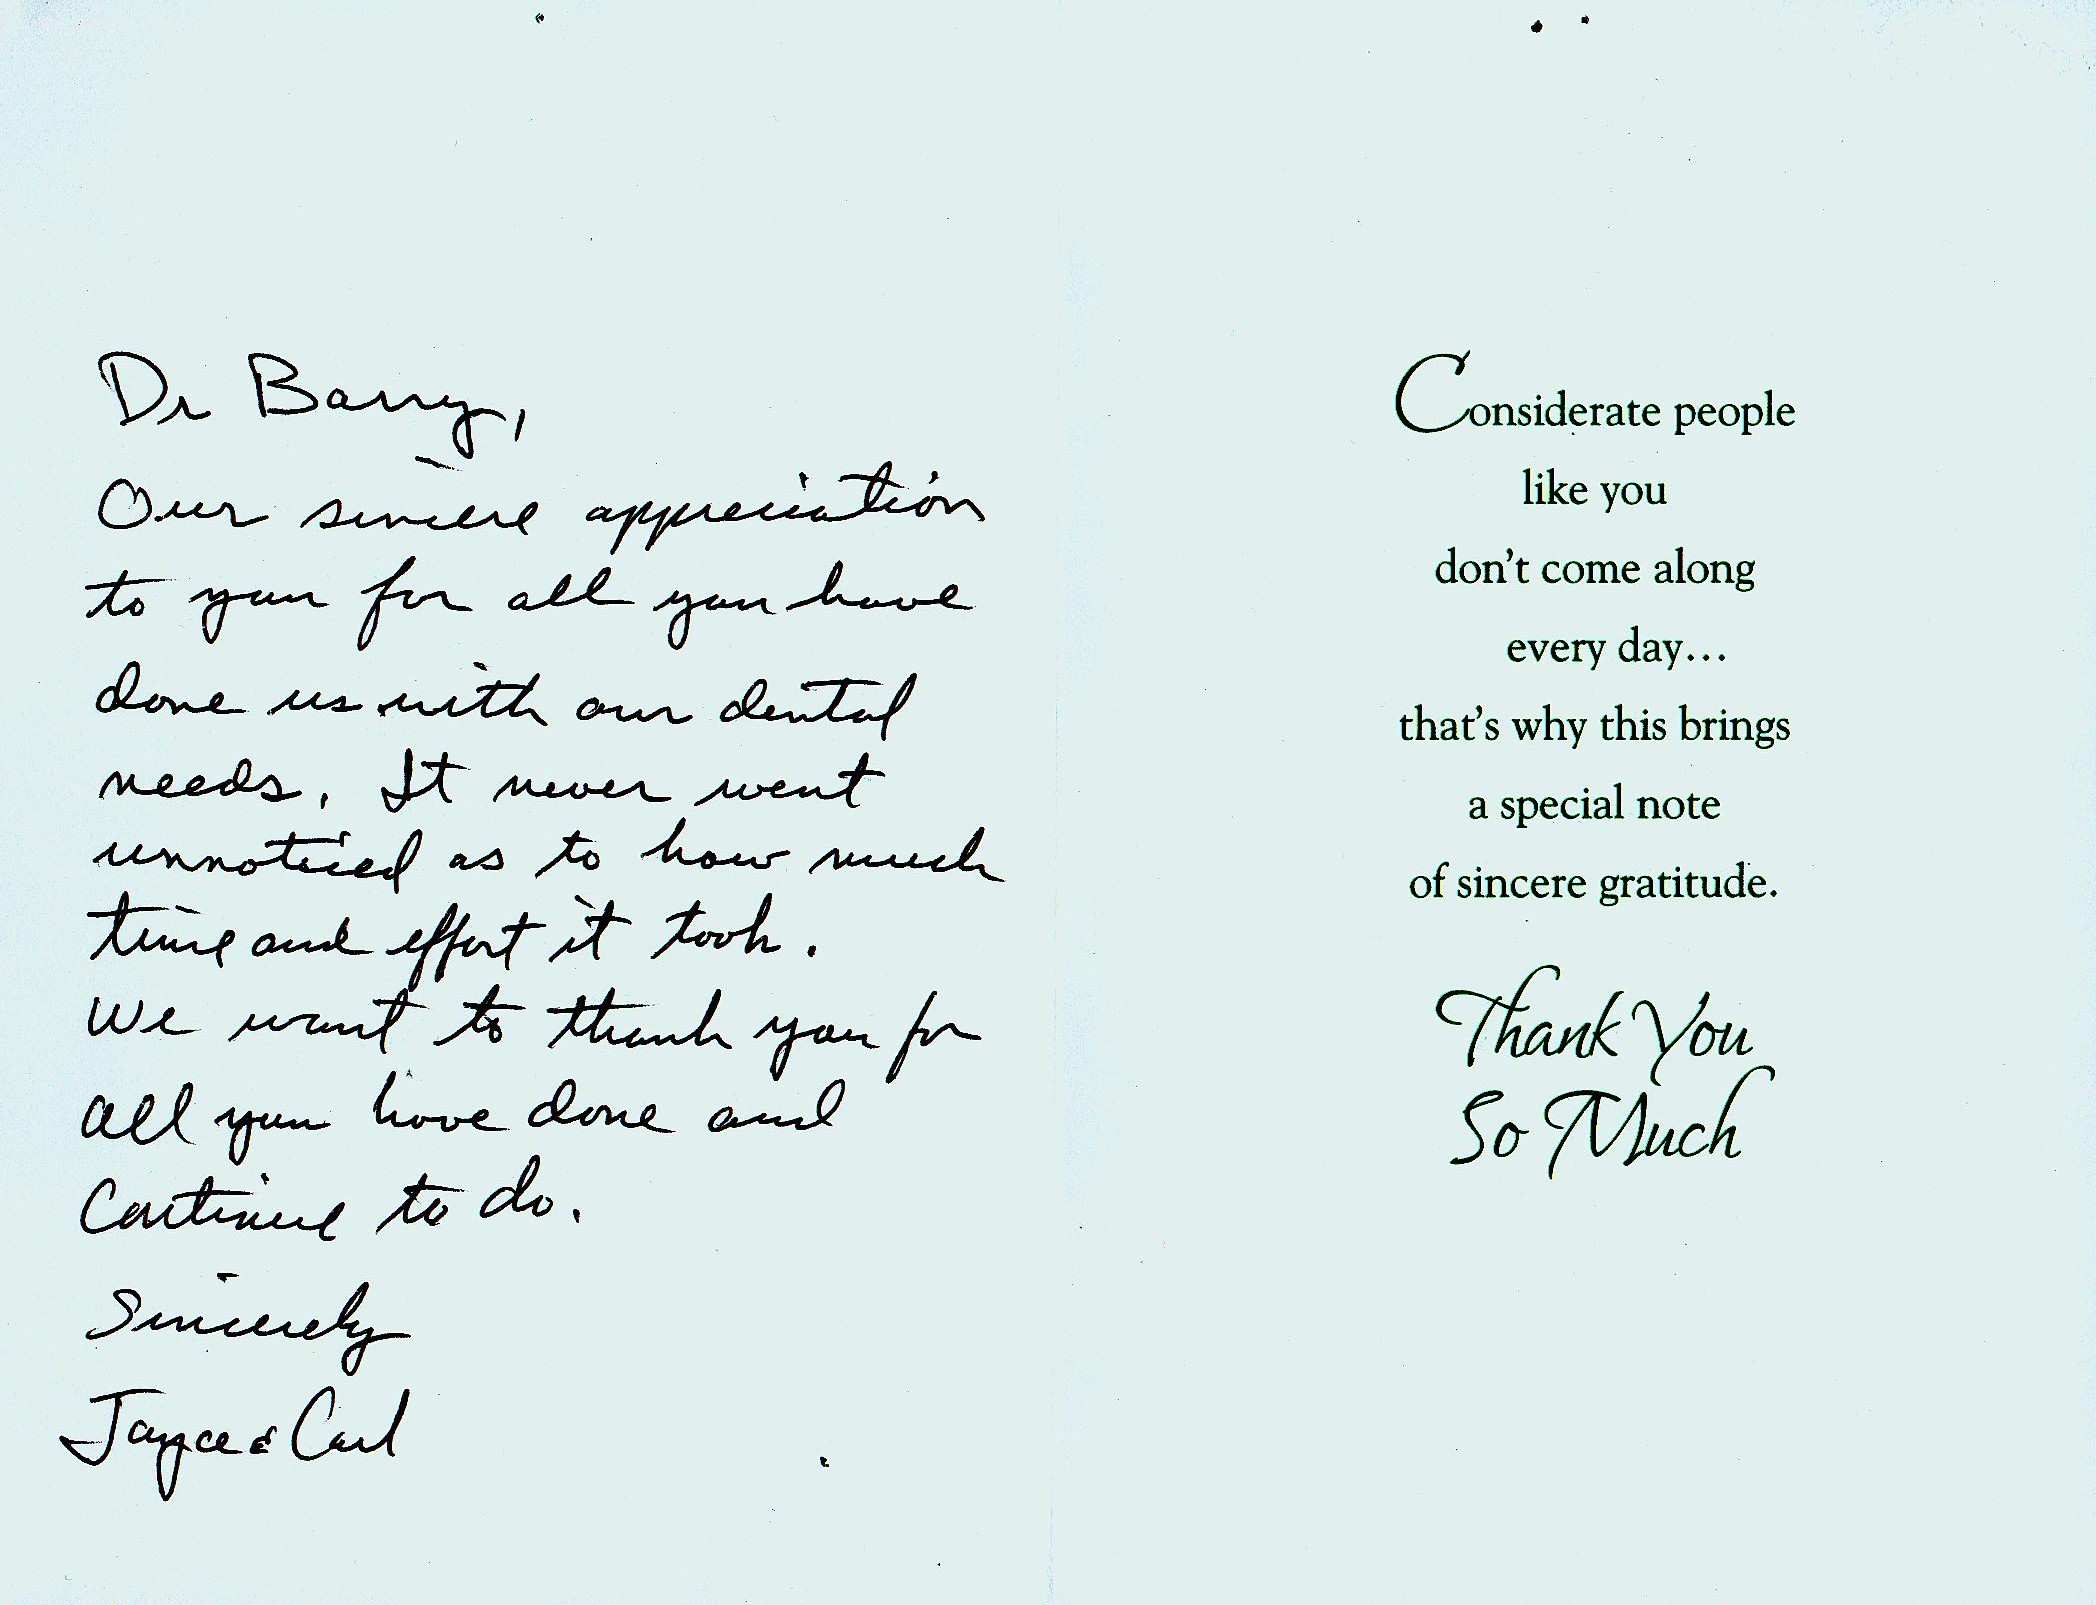 Dr Barry,
Our sincere appreciation
to you for all you have
done us with our dental
needs. It never went
unnoticed as to how much
time and effort it took.
We want to thank you for
all you have done and
Continue to do.
Sincerely
Jayce & Carl
Considerate people
like you
don't come along
every day...
that's why this brings
a special note
of sincere gratitude.
Thank You
So Much